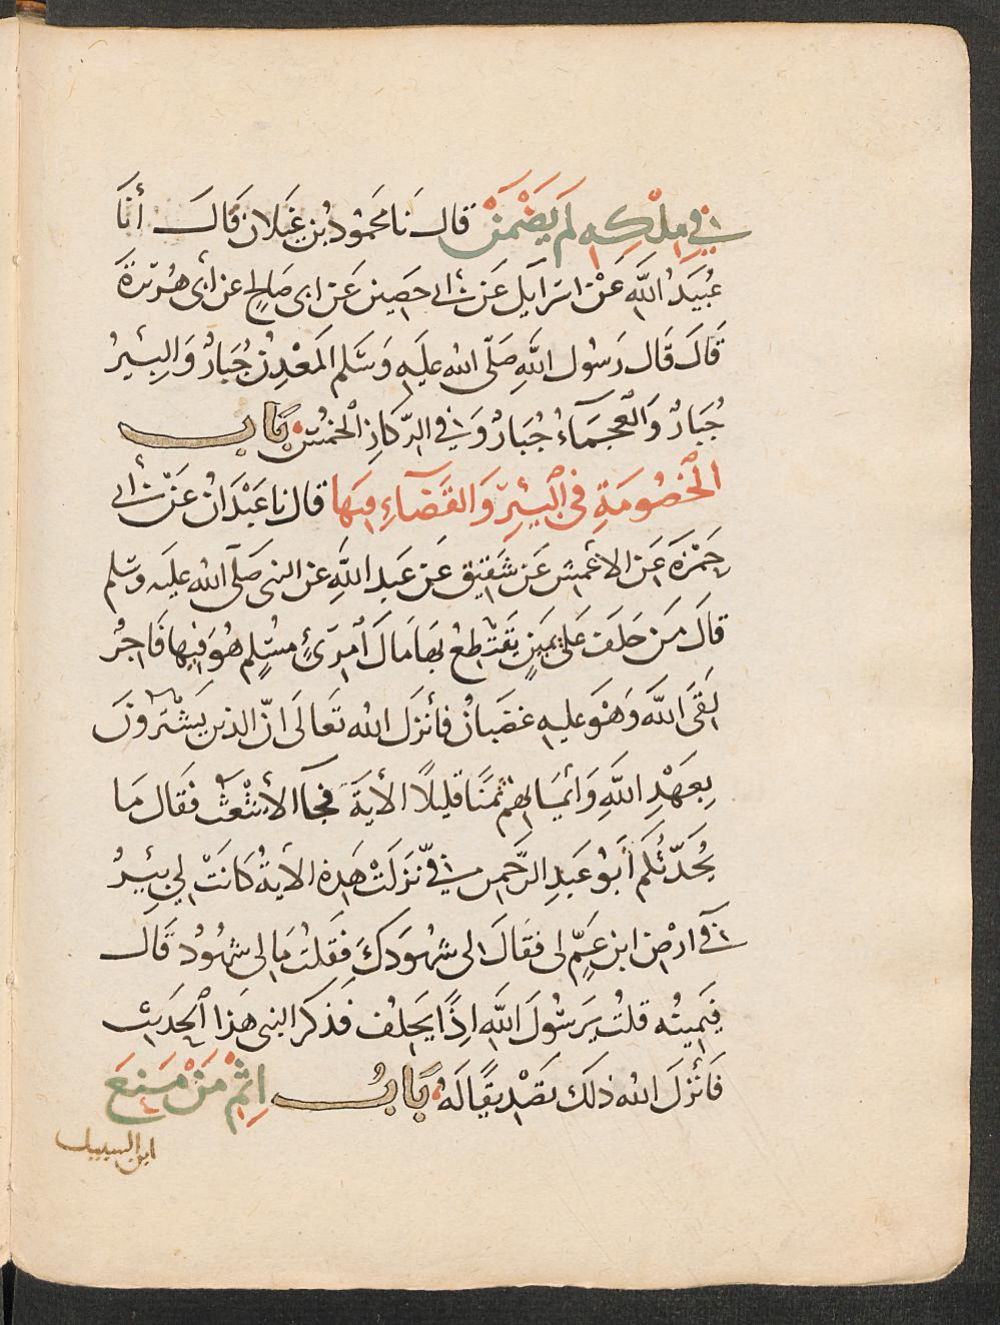 في مِلْكِهِ لَمْ يَضْمَنْ قال نا محَمُود بْن غَيلان قَالَ أنَا
عُبَيدُ اللَّهِ عَنْ اسرَايل عَن أبي حَصِين عَن ابى صَالح عن أبى هُرَيرَةَ
قَالَ قَال رَسُول اللَّهِ صَلّى الله عليَهِ وَسَلم المَعْدِنُ جُبَارٌ وَالبِئيرُ
جُبَارٌ وَالْعجمَاءُ جُبَارٌ وَفي الرّكازِ الخمُسُ بَابٌ
الْخصُومَةِ فى الْبِئيرِ وَالقَضَآءِ فِيَها قال نا عَبْدَانُ عَنْ أبي
حَمْزَةَ عَن الاعْمَشِ عَن شَقيق عَن عَبدِ اللَّهِ عن النبى صَلّى الله عليَه وسَلم
قالَ مَن حَلَف عَلى يمَينٍ يَقتَطعُ بهَا مَالَ اُمرِئٍ مسُلِم هُوَ فِيها فَاجرٌ
لَقىَ اللَّهَ وَهُوَ عليهِ غضَبانُ فأنزَل الله تعَالَى انّ الذين يَشْترَونَ
بِعَهْدِ اللَّهِ وَأيمَانهِمْ ثمَنًا قليلًا الأيَةَ فجَآ الأشْعَثُ فقَال مَا
يُحَدّثُكم أبَوُ عَبدِ الرّحَمن فيّ نَزَلَتْ هَذِهِ الأيةُ كَانَتْ لِي بِئيرٌ
في ارْضِ ابن عَمٍّ لى فقَالَ لى شهُودَكَ فقلتُ مَا لى شهُوُدٌ قَال
فيَميِنُه قلتُ يَرسُولَ اللَّهِ اِذًا يَحلِف فَذكرَ النبى هَذا الْحدَيث
فَأنزَلَ الله ذلكَ تصَدْيقًا لَهُ بَابُ إثْمِ مَنْ مَنعَ
ابن السبيل